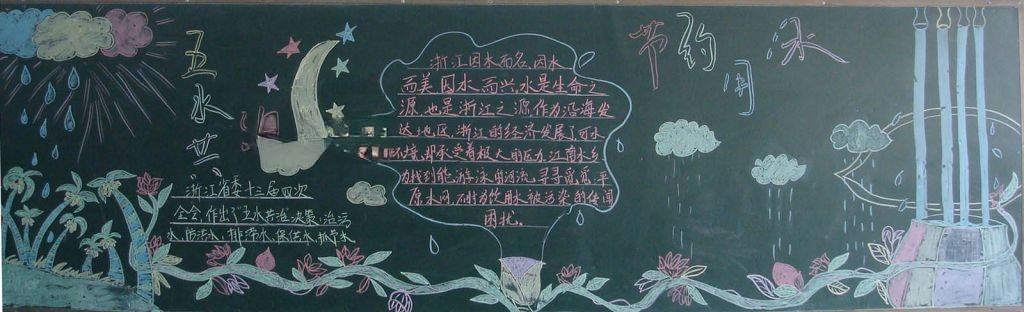 五水共
"浙江省委十三届四次
全会，作出了"五水共治"决策、治污
水、防洪水、排涝水、保供水、抓节水
浙江因水而名，因水
而美因水而兴水是生命之
源，也是浙江之源作为沿海发
达地区，浙江的经济发展了可水
环境，却承受着极大的压力，江南水乡
力找到能游泳的河流，寻寻觅觅，平
原水网
饮用水被污染的传闻
困扰。
节约用水